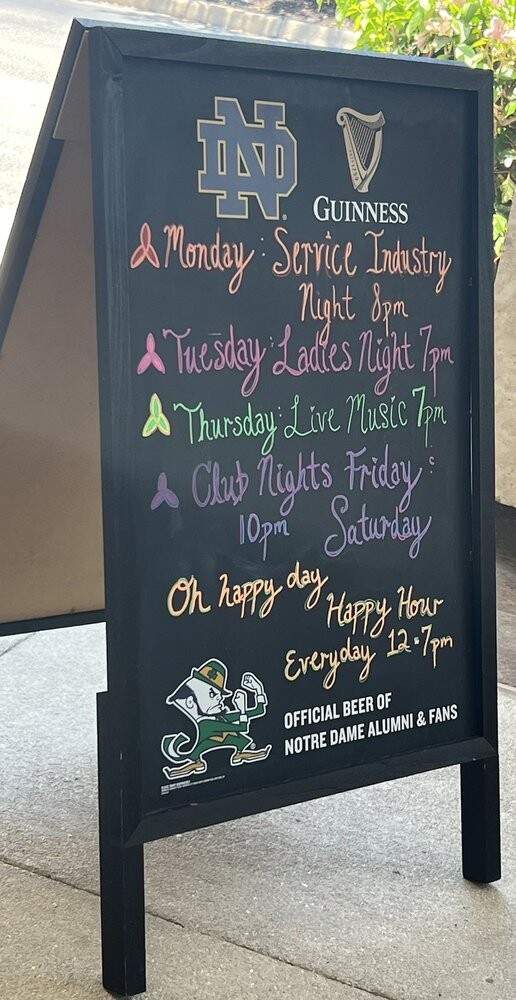 ND
GUINNESS
Monday: Service Industry
Night 8pm
Tuesday: Ladies Night 7pm
Thursday: Live Music 7pm
Club Nights Friday:
10pm Saturday
Oh happy day
Happy Hour
Everyday 12-7pm
OFFICIAL BEER OF
NOTRE DAME ALUMNI & FANS